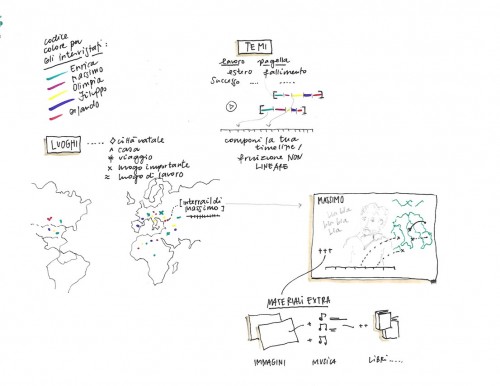 codice
colore per
gli intervistati:
Enrica
Massimo
Olimpia
Filippo
Orlando
TEMI
lavoro pagella
estero fallimento
Successo .... ......
componi la tua
timeline/
fruizione NON
LINEARE
LUOGHI ...... città natale
casa
viaggio
luogo importante
luogo di lavoro
[interrail di
massimo]
MASSIMO
bla bla
bla bla
bla
+++
MATERIALI EXTRA
++
IMMAGINI MUSICA LIBRI.....